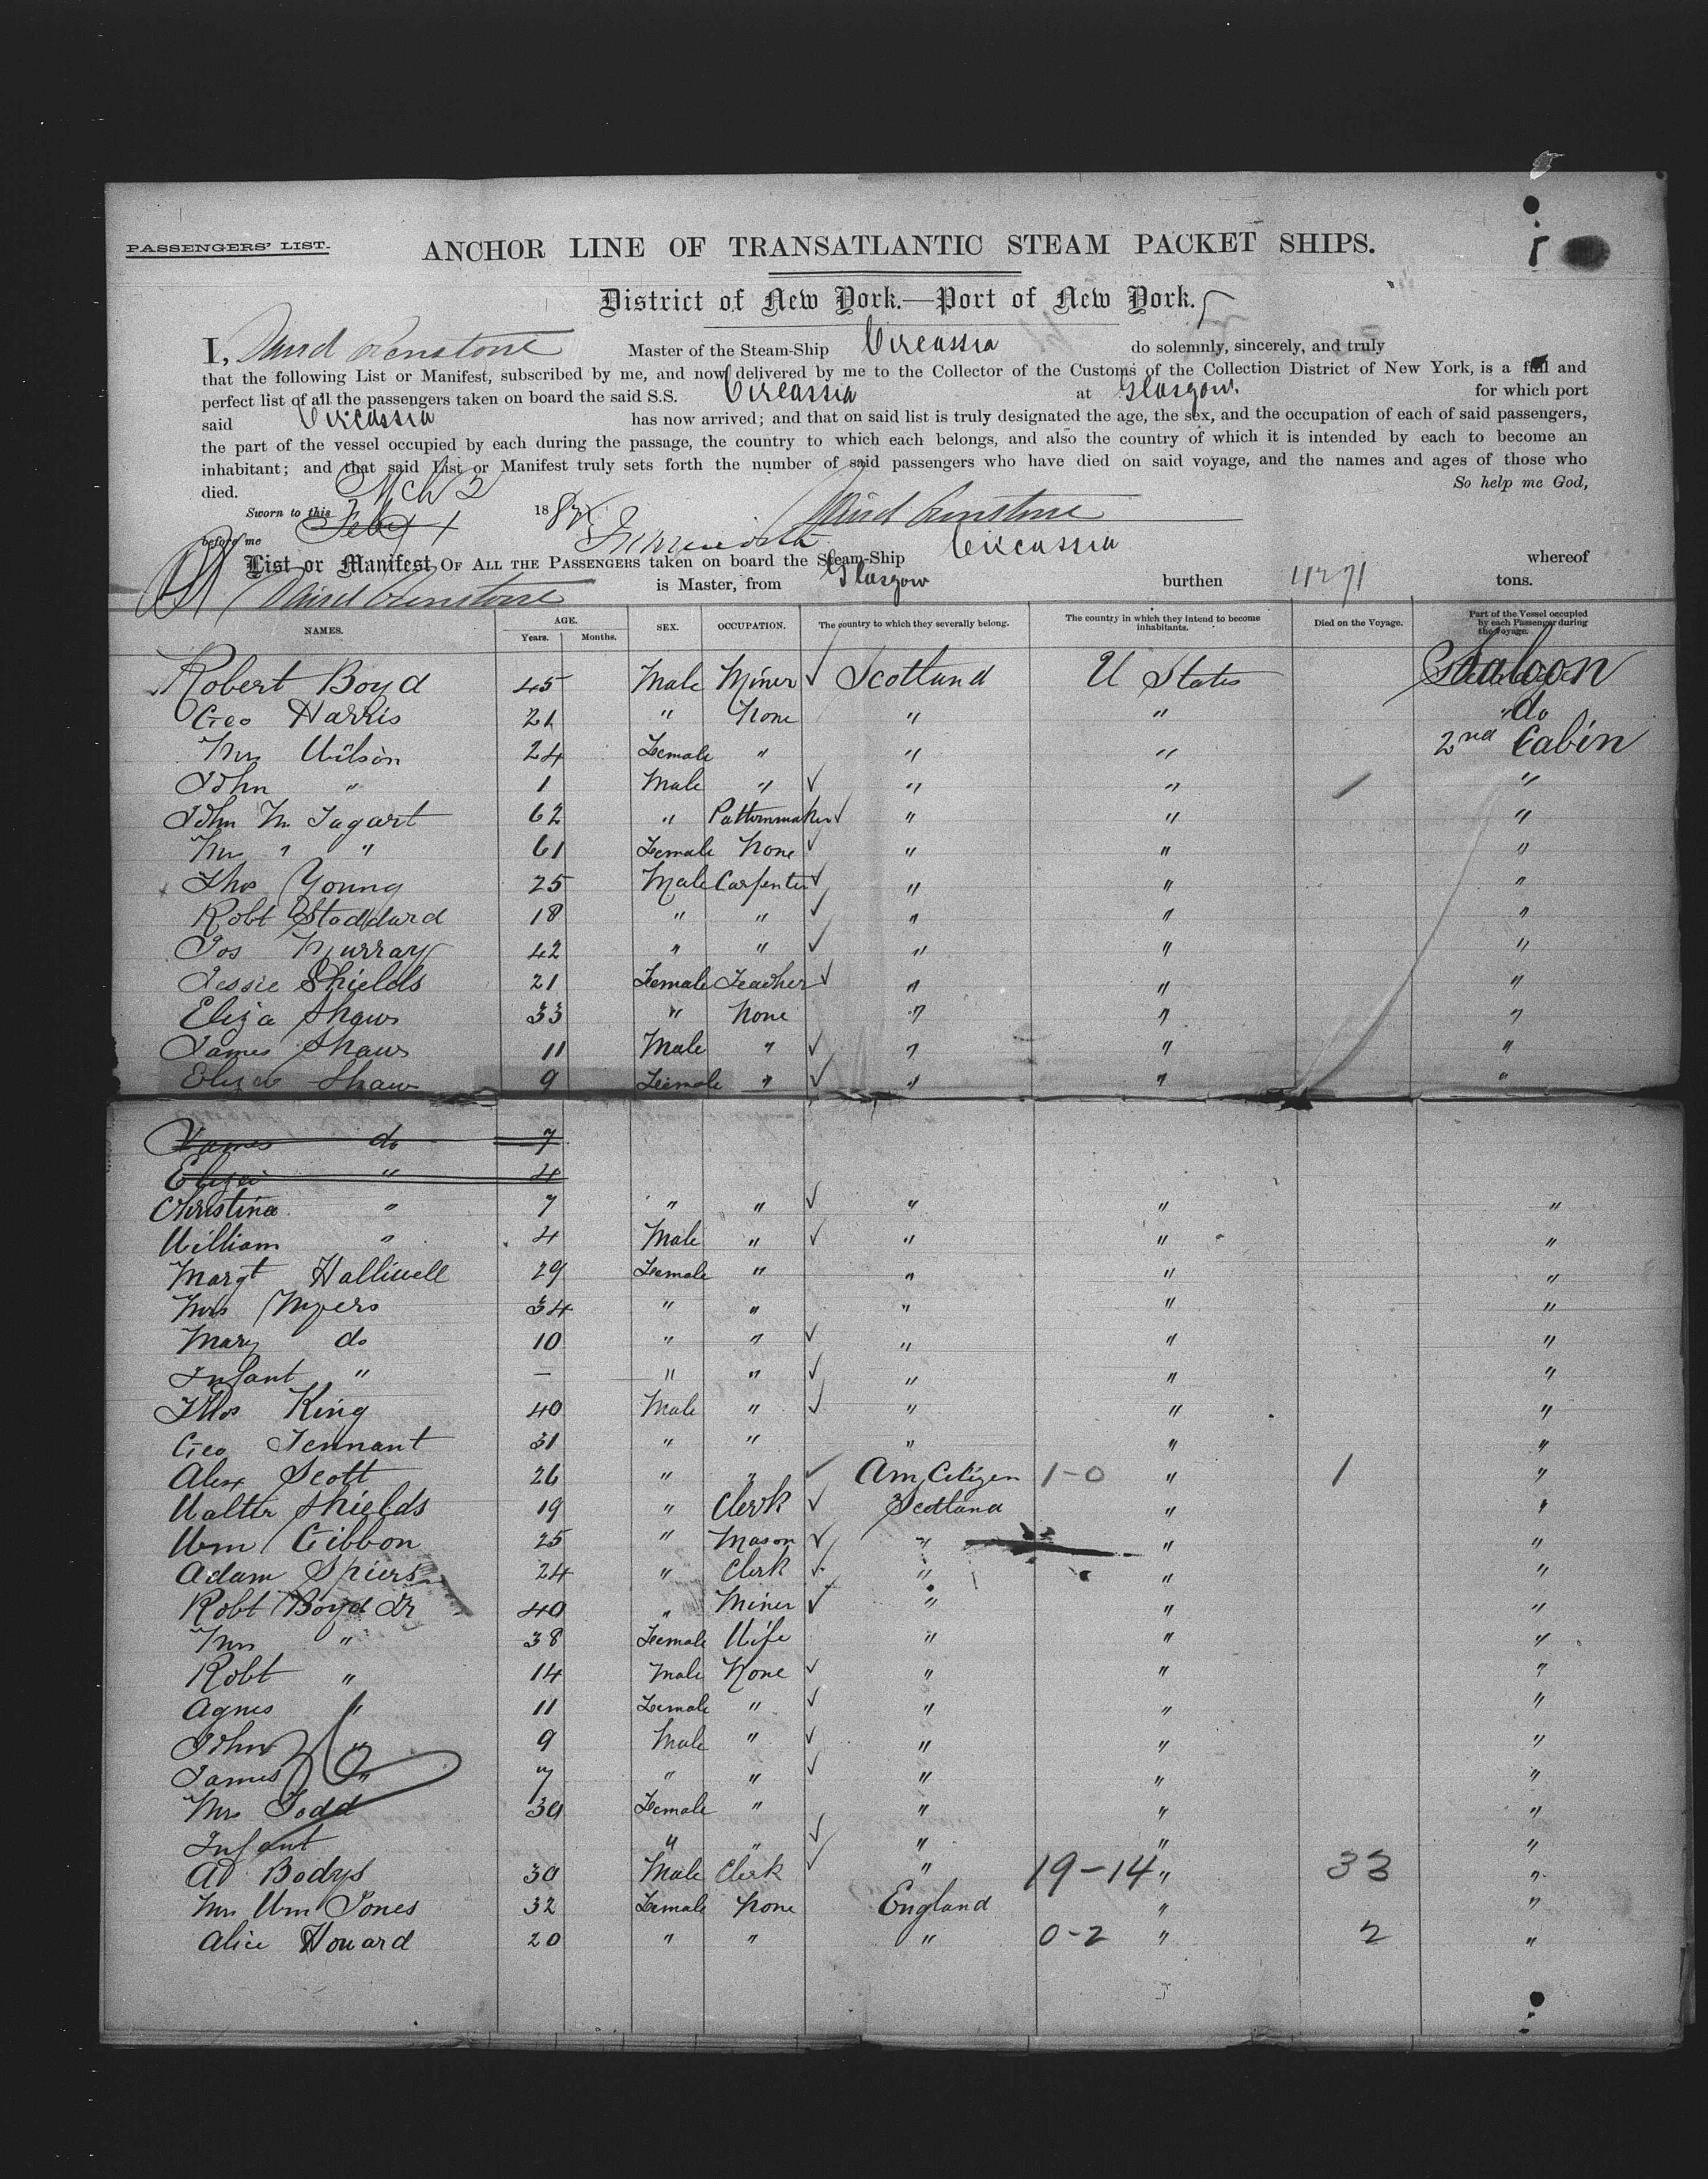 PASSENGERS' LIST.
ANCHOR LINE OF TRANSATLANTIC STEAM PACKET SHIPS.
District of New York.—Port of New York.
I, Master of the Steam-Ship Circassia do solemnly, sincerely, and truly
that the following List or Manifest, subscribed by me, and now delivered by me to the Collector of the Customs of the Collection District of New York, is a full and
perfect list of all the passengers taken on board the said S.S. Circassia at Glasgow for which port
said Circassia has now arrived; and that on said list is truly designated the age, the sex, and the occupation of each of said passengers,
the part of the vessel occupied by each during the passage, the country to which each belongs, and also the country of which it is intended by each to become an
inhabitant; and that said List or Manifest truly sets forth the number of said passengers who have died on said voyage, and the names and ages of those who
died. So help me God,
Mch
Sworn to this Feby 18
before me
List or Manifest OF ALL THE PASSENGERS taken on board the Steam-Ship Circassia whereof
is Master, from Glasgow burthen 4271 tons.
NAMES. AGE. Years. Months. SEX. OCCUPATION. The country to which they severally belong. The country in which they intend to become inhabitants. Died on the Voyage. Part of the Vessel occupied by each Passenger during the voyage.
Robert Boyd 45 Male Miner ✓ Scotland U States Saloon
Geo Harris 21 " None " " do
Mrs Wilson 24 Female " " " 2nd Cabin
John " 1 Male " ✓ " " "
John M. Tagart 62 " Patternmaker ✓ " " "
Mrs " " 61 Female None ✓ " " "
Thos Young 25 Male Carpenter ✓ " " "
Robt Stoddard 18 " " ✓ " " "
Jos Murray 42 " " ✓ " " "
Jessie Shields 21 Female Teacher ✓ " " "
Eliza Shaw 33 " None " " "
James Shaw 11 Male " ✓ " " "
Eliza Shaw 9 Female " ✓ " " "
James do 7
Eliza " 4
Christina " 7 " " ✓ " " "
William " 4 Male " ✓ " " "
Margt Halliwell 29 Female " " " "
Mrs Myers 34 " " " " "
Mary do 10 " " ✓ " " "
Infant " — " " ✓ " " "
Thos King 40 Male " ✓ " " "
Geo Tennant 31 " " " " "
Alex Scott 26 " " ✓ Am, Citizen 1-0 " 1 "
Walter Shields 19 " Clerk ✓ Scotland " "
Wm Gibbon 25 " Mason ✓ " " "
Adam Spiers 24 " Clerk ✓ " " "
Robt Boyd Jr 40 " Miner ✓ " " "
Mrs " 38 Female Wife " " "
Robt " 14 Male None ✓ " " "
Agnes " 11 Female " ✓ " " "
John " 9 Male " ✓ " " "
James " 7 " " ✓ " " "
Mrs Todd 30 Female " " " "
Infant " " ✓ " " "
Ad Bodys 30 Male Clerk ✓ " 19-14 " 33 "
Mrs Wm Jones 32 Female None England " "
Alice Howard 20 " " " 0-2 " 2 "